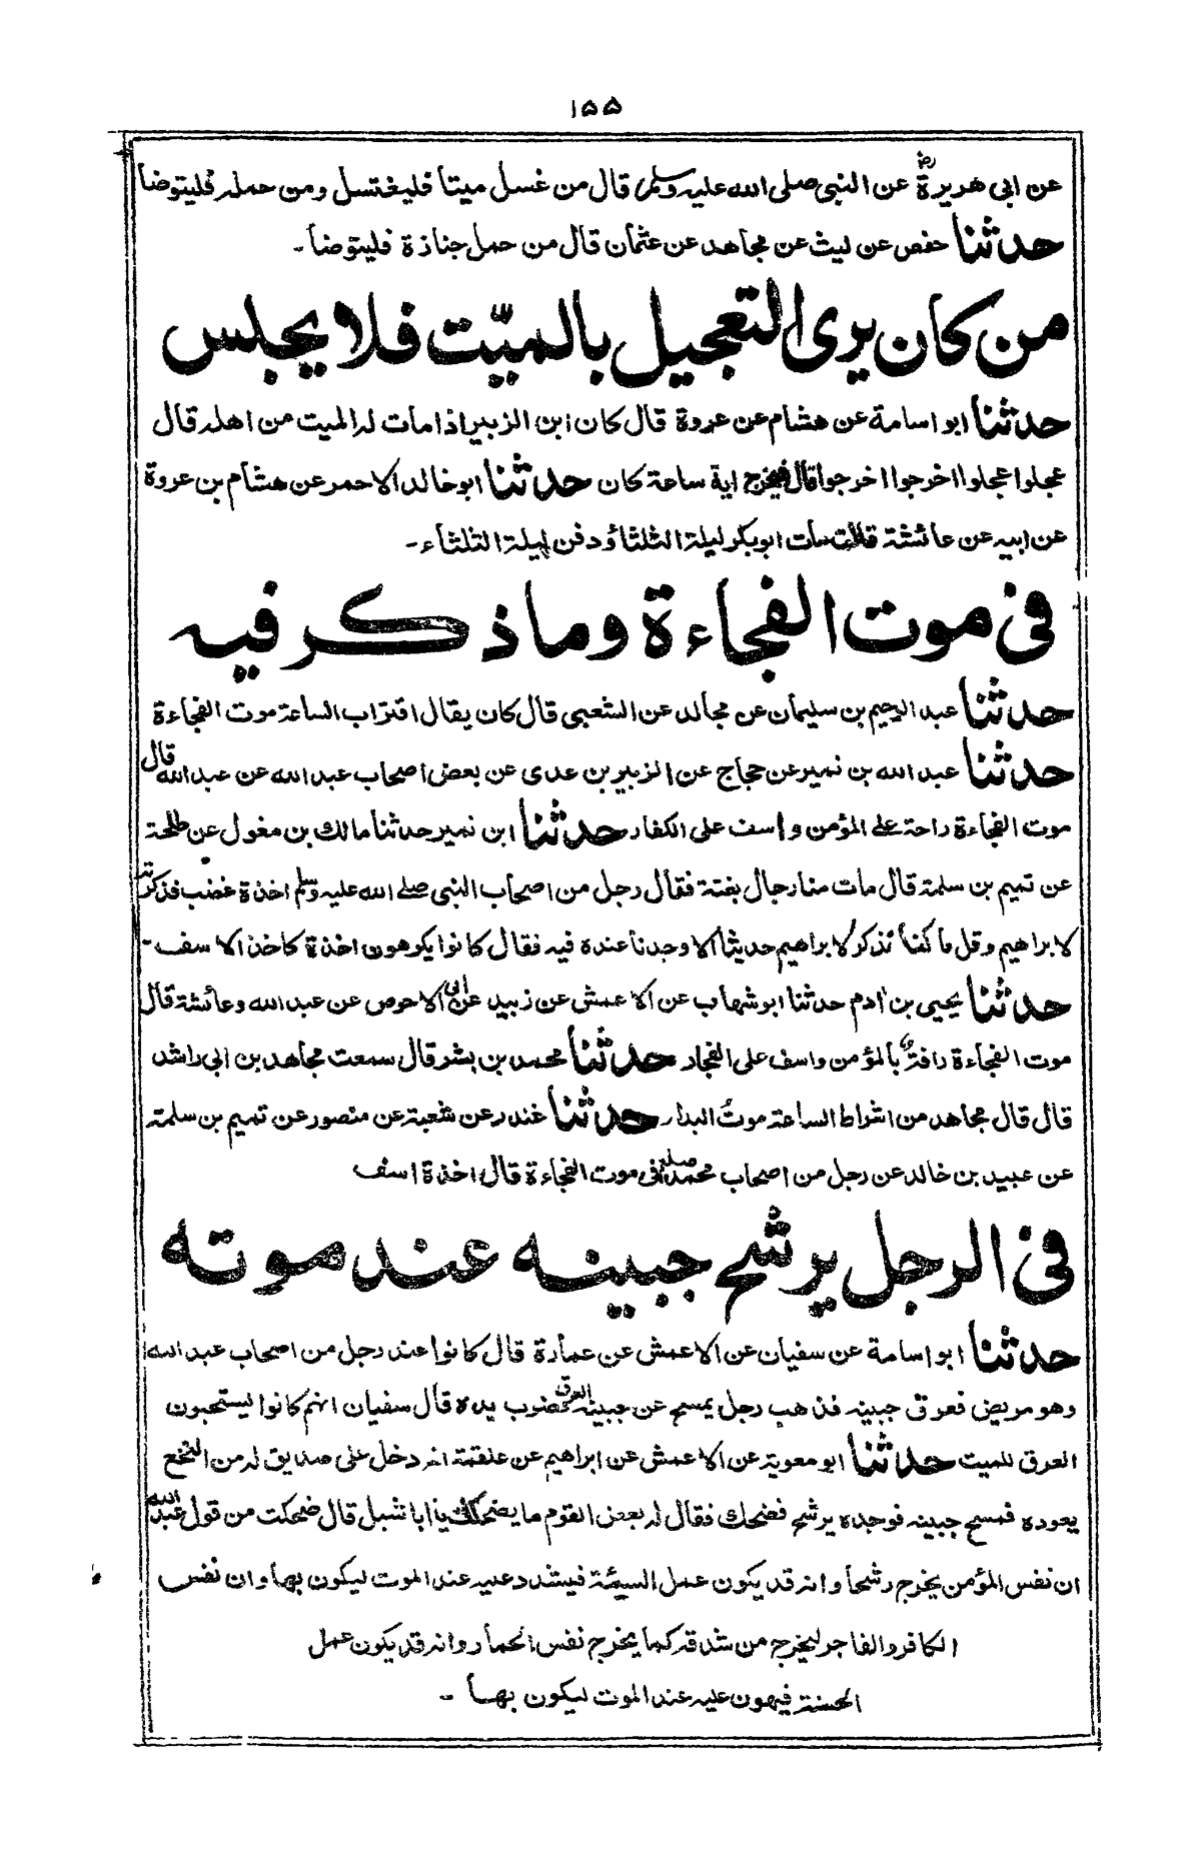 ١٥٥
عن ابى هريرة رض عن النبى صلى الله عليه وسلم قال من غسل ميتا فليغتسل ومن حمله فليتوضأ
حدثنا حفص عن ليث عن مجاهد عن عثمان قال من حمل جنازة فليتوضأ۔
من كان يرى التعجيل بالميّت فلا يجلس
حدثنا ابو اسامة عن هشام عن عروة قال كان ابن الزبير اذا مات له الميت من اهله قال
عجلوا عجلوا اخرجوا اخرجوا قال فيخرج اية ساعة كان حدثنا ابو خالد الاحمر عن هشام بن عروة
عن ابيه عن عائشة قالت مات ابوبكر ليلة الثلثاء ودفن ليلة الثلثاء۔
فى موت الفجاءة وما ذكر فيه
حدثنا عبد الرحيم بن سليمان عن مجالد عن الشعبى قال كان يقال اقتراب الساعة موت الفجاءة
حدثنا عبد الله بن نمير عن حجاج عن الزبير بن عدى عن بعض اصحاب عبد الله عن عبد الله قال
موت الفجاءة راحة على المؤمن واسف على الكفار حدثنا ابن نمير حدثنا مالك بن مغول عن طلحة
عن تميم بن سلمة قال مات منا رجال بغتة فقال رجل من اصحاب النبى صلے الله عليه وسلم اخذة غضب فذكرته
لابراهيم وقل ما كنا نذكر لابراهيم حديثا الا وجدنا عنده فيه فقال كانوا يكرهون اخذة كاخذ الاسف۔
حدثنا يحيى بن ادم حدثنا ابو شهاب عن الاعمش عن زبيد عن ابى الاحوص عن عبد الله وعائشة قال
موت الفجاءة رافة بالمؤمن واسف على الفجار حدثنا محمد بن بشر قال سمعت مجاهد بن ابى راشد
قال قال مجاهد من اشراط الساعة موت البدار حدثنا غندر عن شعبة عن منصور عن تميم بن سلمة
عن عبيد بن خالد عن رجل من اصحاب محمد صلعم فى موت الفجاءة قال اخذة اسف
فى الرجل يرشح جبينه عند موته
حدثنا ابو اسامة عن سفيان عن الاعمش عن عمارة قال كانوا عند رجل من اصحاب عبد الله
وهو مريض فعرق جبينه فذهب رجل يمسح عن جبينه العرق فضرب يده قال سفيان انهم كانوا يستحبون
العرق للميت حدثنا ابو معوية عن الاعمش عن ابراهيم عن علقمة انه دخل على صديق له من النخع
يعوده فمسح جبينه فوجده يرشح فضحك فقال له بعض القوم ما يضحكك يا ابا شبل قال ضحكت من قول عبد الله
ان نفس المؤمن يخرج رشحا وانه قد يكون عمل السيئة فيشدد عليه عند الموت ليكون بها وان نفس
الكافر والفاجر ليخرج من شدقه كما يخرج نفس الحمار وانه قد يكون عمل
الحسنة فيهون عليه عند الموت ليكون بها۔